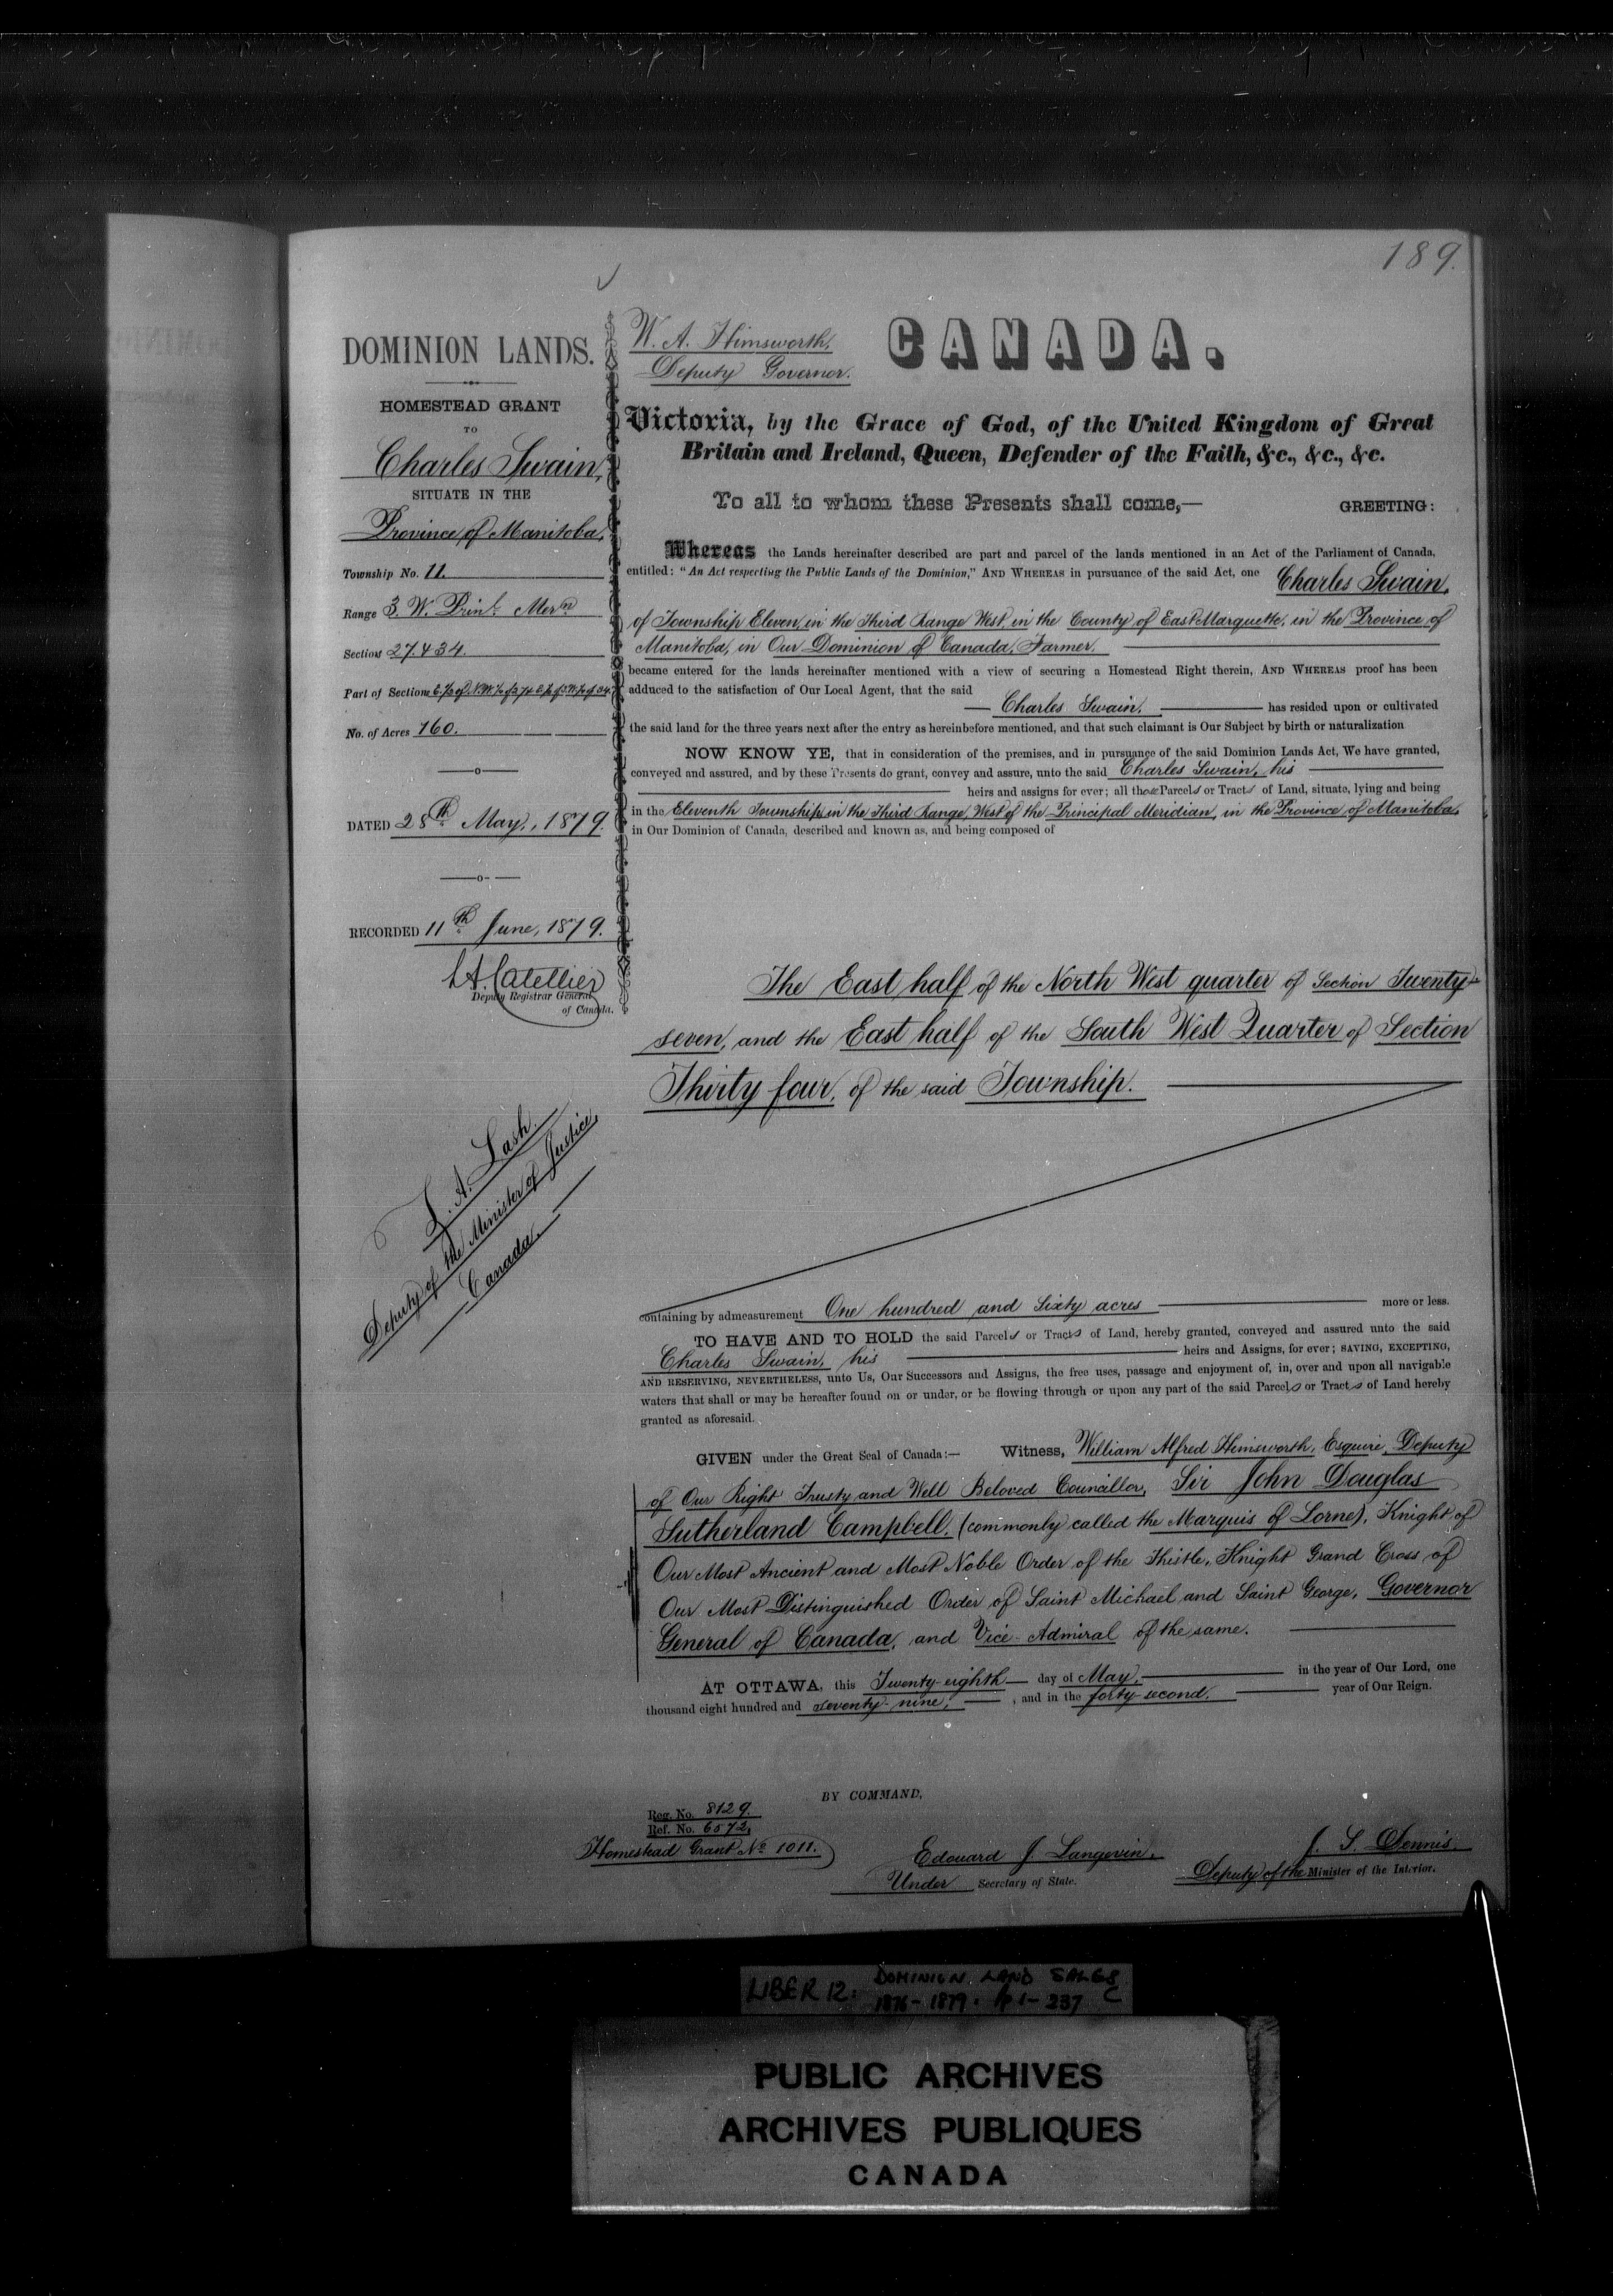 189.
DOMINION LANDS.
HOMESTEAD GRANT
TO
Charles Swain,
SITUATE IN THE
Province of Manitoba,
Township No. 11.
Range 3. W. Prinl. Mern
Sections 27. & 34.
Part of Sections E. ½ of N.W. ¼ of 27 & E. ½ of S.W. ¼ of 34
No. of Acres 160.
DATED 28th May, 1879.
RECORDED 11th June, 1879.
L. A. Catellier
Deputy Registrar General
of Canada.
Z. A. Lash.
Deputy of the Minister of Justice,
Canada.
W. A. Himsworth,
Deputy Governor.
CANADA.
Victoria, by the Grace of God, of the United Kingdom of Great
Britain and Ireland, Queen, Defender of the Faith, &c., &c., &c.
To all to whom these Presents shall come,—
GREETING:
Whereas the Lands hereinafter described are part and parcel of the lands mentioned in an Act of the Parliament of Canada,
entitled: "An Act respecting the Public Lands of the Dominion," AND WHEREAS in pursuance of the said Act, one Charles Swain,
of Township Eleven, in the Third Range West, in the County of East Marquette, in the Province of
Manitoba, in Our Dominion of Canada, Farmer.
became entered for the lands hereinafter mentioned with a view of securing a Homestead Right therein, AND WHEREAS proof has been
adduced to the satisfaction of Our Local Agent, that the said
— Charles Swain, — has resided upon or cultivated
the said land for the three years next after the entry as hereinbefore mentioned, and that such claimant is Our Subject by birth or naturalization
NOW KNOW YE, that in consideration of the premises, and in pursuance of the said Dominion Lands Act, We have granted,
conveyed and assured, and by these Presents do grant, convey and assure, unto the said Charles Swain, his
heirs and assigns for ever; all those Parcels or Tracts of Land, situate, lying and being
in the Eleventh Township, in the Third Range, West of the Principal Meridian, in the Province of Manitoba,
in Our Dominion of Canada, described and known as, and being composed of
The East half of the North West quarter of Section Twenty-
seven, and the East half of the South West Quarter of Section
Thirty four, of the said Township.
containing by admeasurement One hundred and Sixty acres — more or less.
TO HAVE AND TO HOLD the said Parcels or Tracts of Land, hereby granted, conveyed and assured unto the said
Charles Swain, his — heirs and Assigns, for ever; SAVING, EXCEPTING,
AND RESERVING, NEVERTHELESS, unto Us, Our Successors and Assigns, the free uses, passage and enjoyment of, in, over and upon all navigable
waters that shall or may be hereafter found on or under, or be flowing through or upon any part of the said Parcels or Tracts of Land hereby
granted as aforesaid.
GIVEN under the Great Seal of Canada:— Witness, William Alfred Himsworth, Esquire, Deputy
of Our Right Trusty and Well Beloved Councillor, Sir John Douglas
Sutherland Campbell, (commonly called the Marquis of Lorne), Knight of
Our Most Ancient and Most Noble Order of the Thistle, Knight Grand Cross of
Our Most Distinguished Order of Saint Michael and Saint George, Governor
General of Canada, and Vice-Admiral of the same.
AT OTTAWA, this Twenty-eighth — day of May, — in the year of Our Lord, one
thousand eight hundred and seventy-nine, — , and in the forty-second. — year of Our Reign.
BY COMMAND,
Reg. No. 8129.
Ref. No. 6572,
Homestead Grant No. 1011.
Edouard J. Langevin,
Under Secretary of State.
J. S. Dennis,
Deputy of the Minister of the Interior.
LIBER 12: DOMINION LAND SALES
1876-1879. pp 1-237 C
PUBLIC ARCHIVES
ARCHIVES PUBLIQUES
CANADA